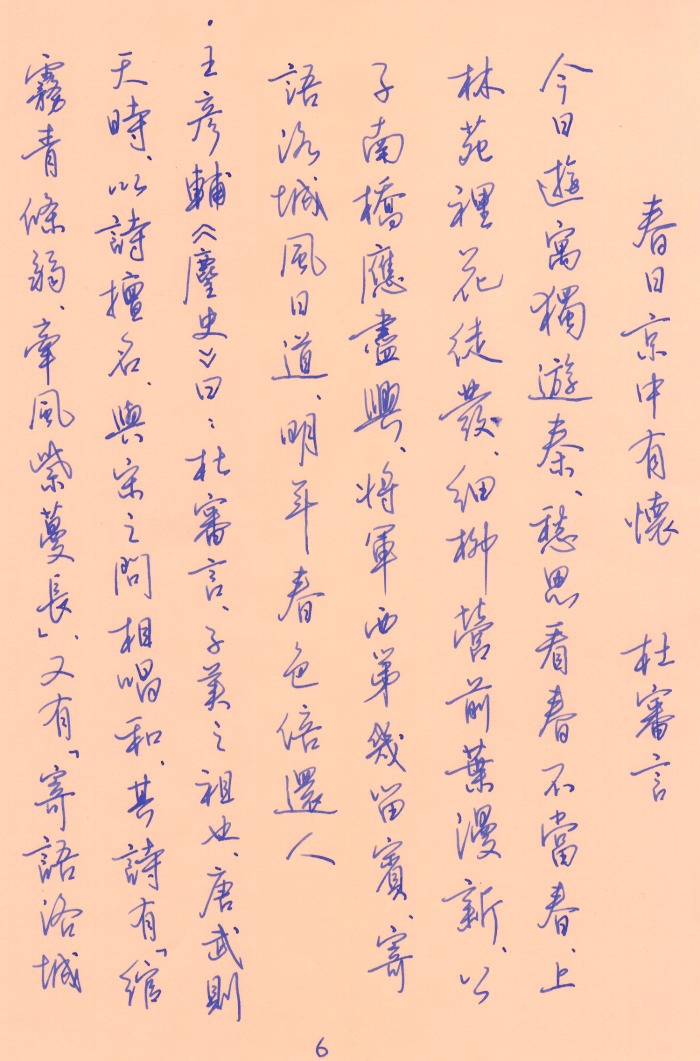 春日京中有懷　杜審言
今日遊寓獨遊秦、愁思看春不當春、上
林苑裡花徒發、細柳營前葉漫新、公
子南橋應盡興、將軍西第幾留賓、寄
語洛城風日道、明年春色倍還人
·王彥輔《麈史》曰:杜審言、子美之祖也、唐武則
天時、以詩擅名、與宋之問相唱和、其詩有「綰
霧青條弱、牽風紫蔓長」、又有「寄語洛城
6